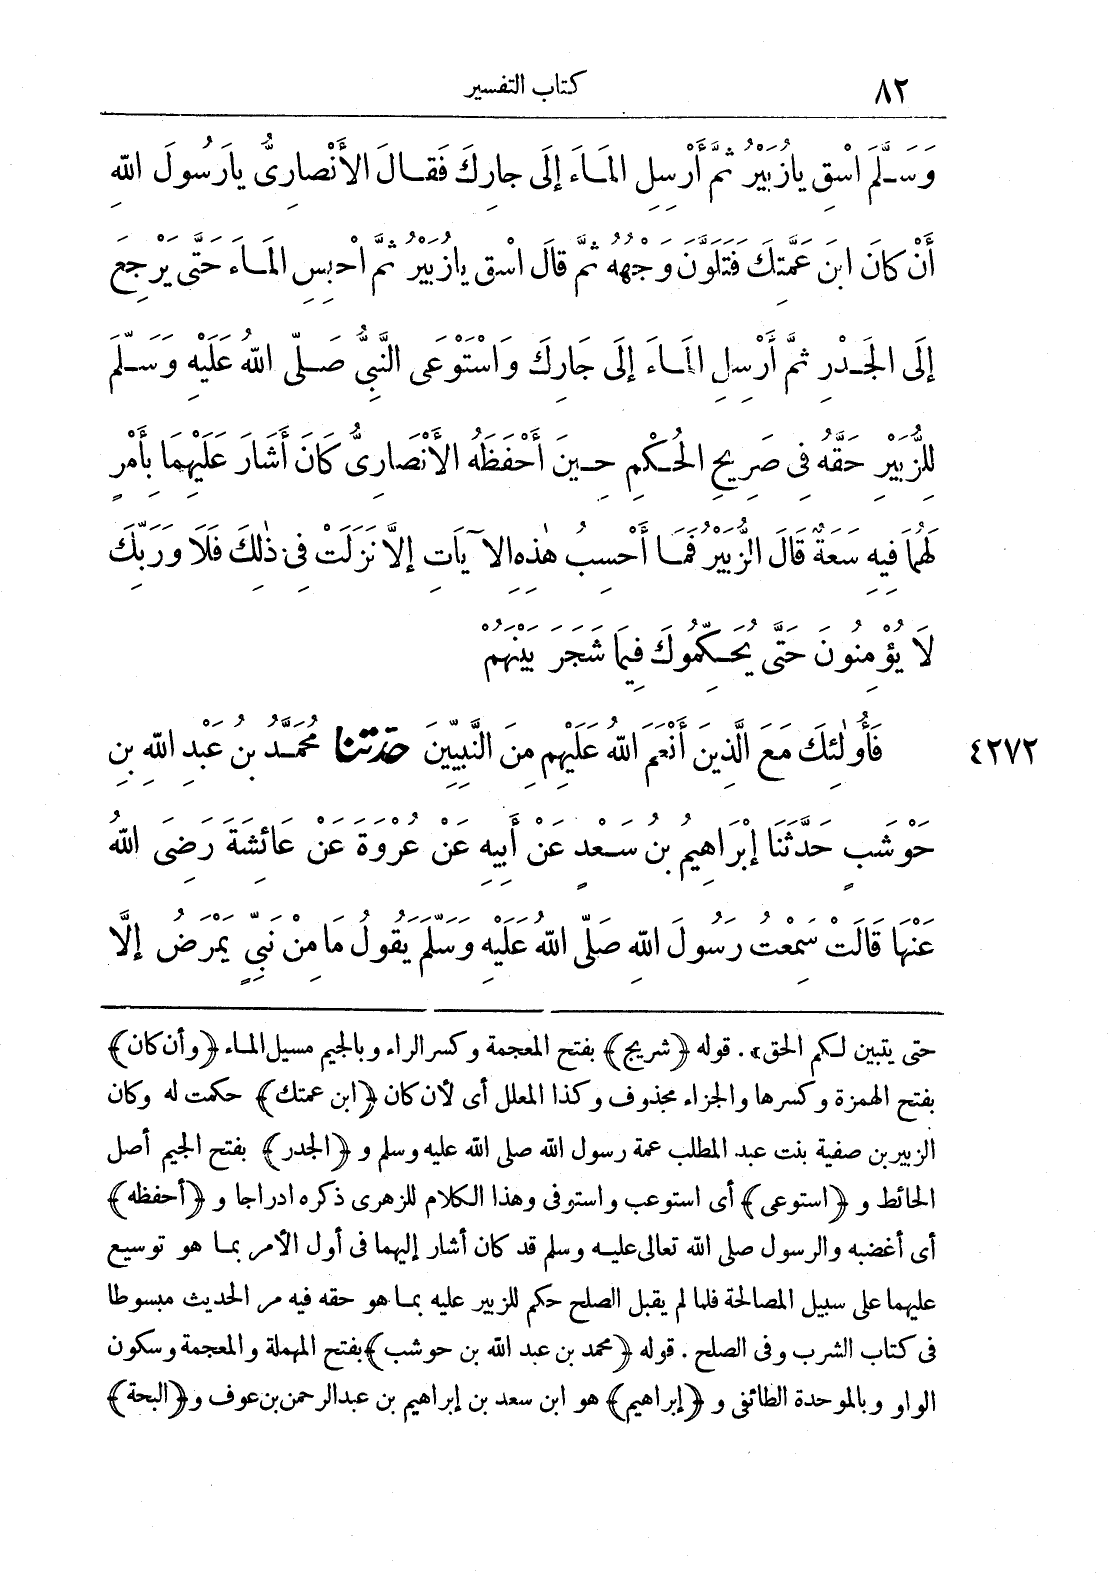 ٨٢
كتاب التفسير
وَسَلَّمَ اسْقِ يازُبَيْرُ ثُمَّ أَرْسِلِ المَاءَ إِلَى جارِكَ فَقَالَ الأَنْصارِىُّ يارَسُولَ اللهِ
أَنْ كانَ ابنَ عَمَّتِكَ فَتَلَوَّنَ وَجْهُهُ ثُمَّ قالَ اسْقِ يازُبَيْرُ ثُمَّ احْبِسِ المَاءَ حَتَّى يَرْجِعَ
إِلَى الجَدْرِ ثُمَّ أَرْسِلِ المَاءَ إِلَى جَارِكَ وَاسْتَوْعَى النَّبِىُّ صَلَّى اللهُ عَلَيْهِ وَسَلَّمَ
لِلزُّبَيْرِ حَقَّهُ فِى صَرِيحِ الحُكْمِ حِينَ أَحْفَظَهُ الأَنْصَارِىُّ كَانَ أَشَارَ عَلَيْهِمَا بِأَمْرٍ
لَهُمَا فِيهِ سَعَةٌ قَالَ الزُّبَيْرُ فَمَا أَحْسِبُ هٰذِهِ الآيَاتِ إِلاَّ نَزَلَتْ فِى ذٰلِكَ فَلَا وَرَبِّكَ
لَا يُؤْمِنُونَ حَتَّى يُحَكِّمُوكَ فِيمَا شَجَرَ بَيْنَهُمْ
٤٢٧٢ فَأُولٰئِكَ مَعَ الَّذِينَ أَنْعَمَ اللهُ عَلَيْهِم مِنَ النَّبِيِّينَ حَدَّثَنَا مُحَمَّدُ بنُ عَبْدِ اللهِ بنِ
حَوْشَبٍ حَدَّثَنَا إِبْرَاهِيمُ بنُ سَعْدٍ عَنْ أَبِيهِ عَنْ عُرْوَةَ عَنْ عَائِشَةَ رَضِىَ اللهُ
عَنْهَا قَالَتْ سَمِعْتُ رَسُولَ اللهِ صَلَّى اللهُ عَلَيْهِ وَسَلَّمَ يَقُولُ مَا مِنْ نَبِىٍّ يَمْرَضُ إلَّا
حتى يتبين لكم الحق» . قوله ﴿شريج﴾ بفتح المعجمة وكسر الراء وبالجيم مسيل الماء ﴿وأن كان﴾
بفتح الهمزة وكسرها والجزاء محذوف وكذا المعلل أى لأن كان ﴿ابن عمتك﴾ حكمت له وكان
الزبير بن صفية بنت عبد المطلب عمة رسول الله صلى الله عليه وسلم و ﴿الجدر﴾ بفتح الجيم أصل
الحائط و ﴿استوعى﴾ أى استوعب واستوفى وهذا الكلام للزهرى ذكره ادراجا و ﴿أحفظه﴾
أى أغضبه والرسول صلى الله تعالى عليه وسلم قد كان أشار إليهما فى أول الأمر بما هو توسيع
عليهما على سبيل المصالحة فلما لم يقبل الصلح حكم للزبير عليه بما هو حقه فيه مر الحديث مبسوطا
فى كتاب الشرب وفى الصلح . قوله ﴿محمد بن عبد الله بن حوشب﴾ بفتح المهملة والمعجمة وسكون
الواو وبالموحدة الطائفى و ﴿إبراهيم﴾ هو ابن سعد بن إبراهيم بن عبدالرحمن بن عوف و ﴿البحة﴾